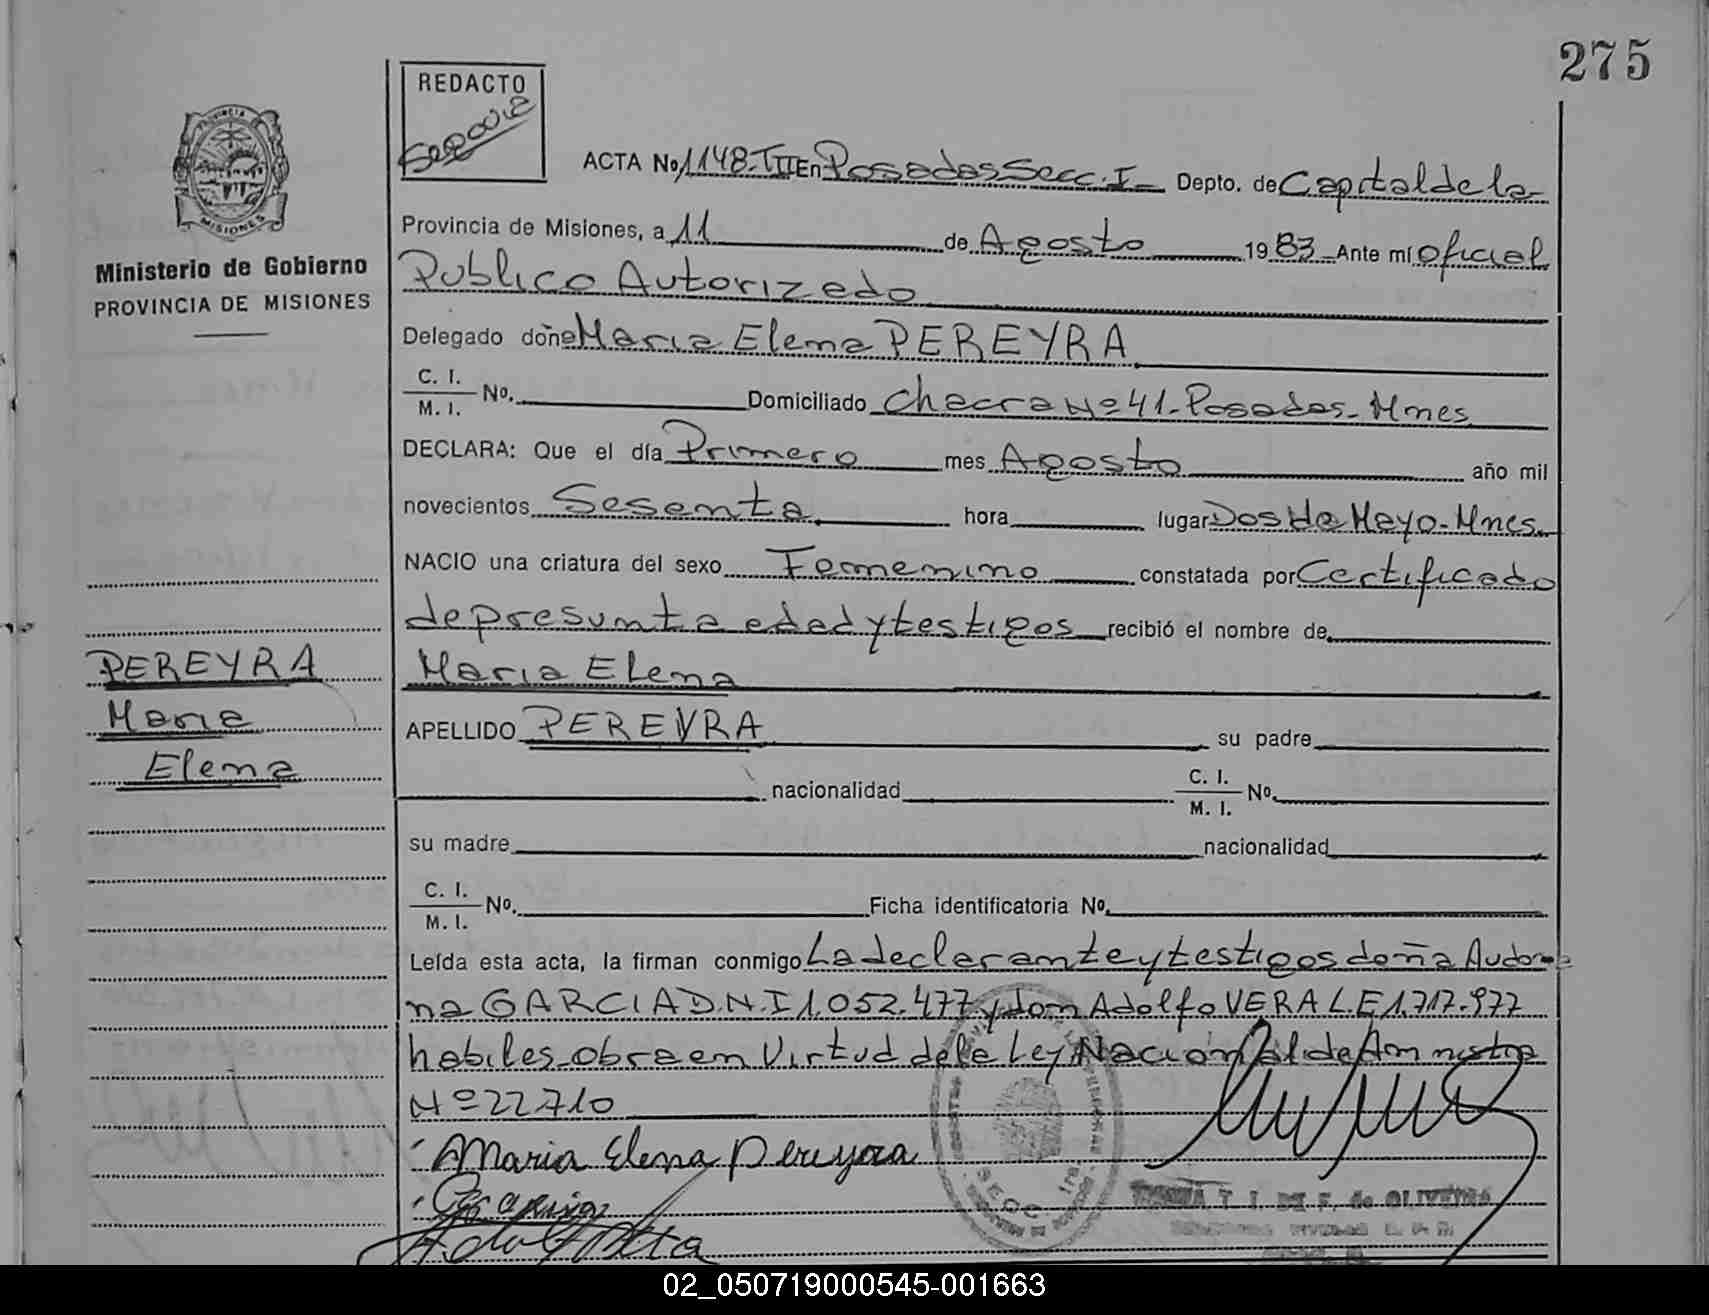 275
REDACTO
PROVINCIA
MISIONES
Ministerio de Gobierno
PROVINCIA DE MISIONES
ACTA No. 1148-TII En Posadas Secc. I Depto. de Capital de la
Provincia de Misiones, a 11 de Agosto 1983 Ante mí oficial
Publico Autorizado
Delegado doña Maria Elena PEREYRA
C. I.
M. I. No. Domiciliado Chacra Nº 41-Posadas-Mnes
DECLARA: Que el día Primero mes Agosto año mil
novecientos Sesenta hora lugar Dos de Mayo-Mnes.
NACIO una criatura del sexo Femenino constatada por Certificado
de presunta edad y testigos recibió el nombre de
Maria Elena
APELLIDO PEREYRA su padre
nacionalidad C. I.
M. I. No.
su madre nacionalidad
C. I.
M. I. No. Ficha identificatoria No.
Leída esta acta, la firman conmigo La declarante y testigos doña Audoma
na GARCIA D.N.I 1.052.477 y don Adolfo VERA L.E 1.717.977
habiles obra en Virtud de la Ley Nacional de Amnistia
Nº 22710
Maria Elena Pereyra
PEREYRA
Maria
Elena
T. I. DE F. de OLIVEIRA
02_050719000545-001663